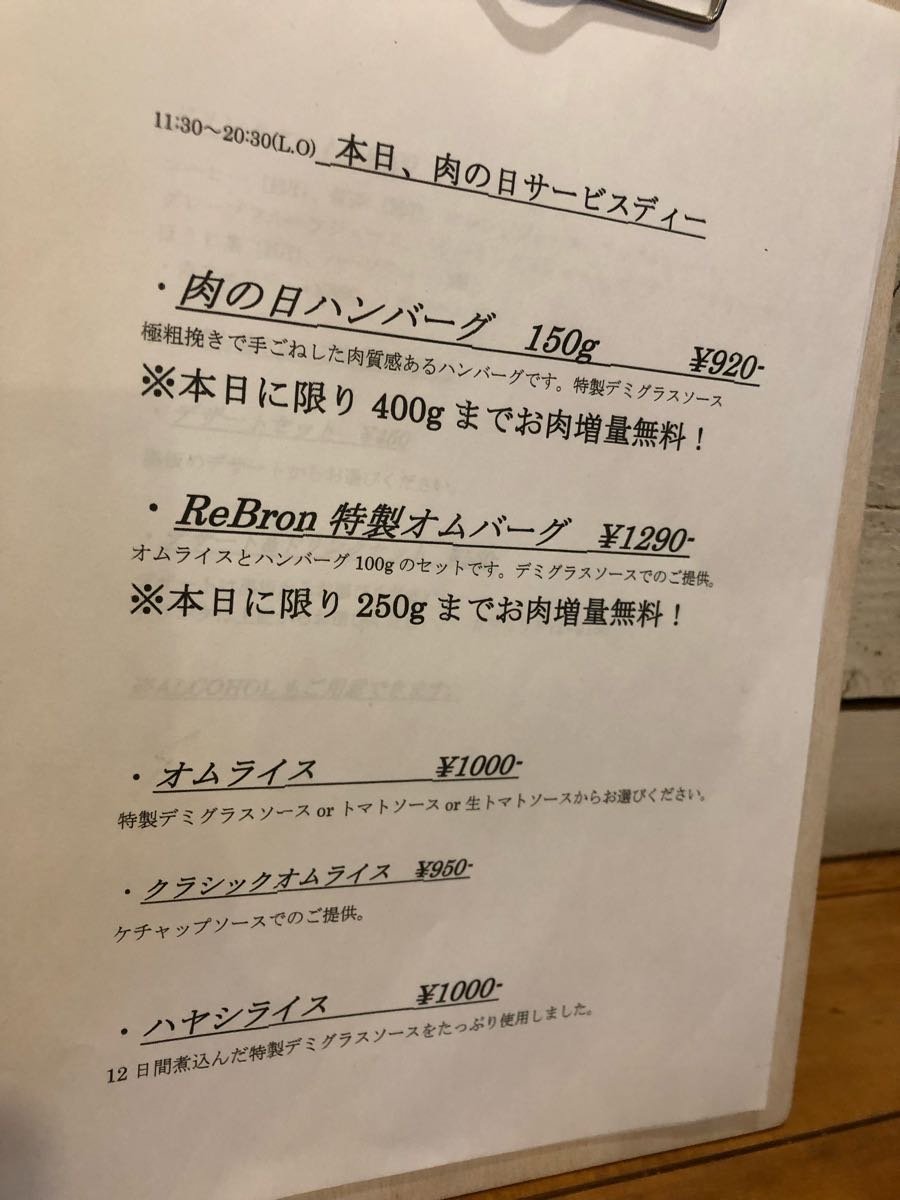 11:30～20:30(L.O) 本日、肉の日サービスディー
・肉の日ハンバーグ 150g ¥920-
極粗挽きで手ごねした肉質感あるハンバーグです。特製デミグラスソース
※本日に限り 400g までお肉増量無料！
・ReBron 特製オムバーグ ¥1290-
オムライスとハンバーグ 100g のセットです。デミグラスソースでのご提供。
※本日に限り 250g までお肉増量無料！
※ALCOHOL もご用意できます。
・オムライス ¥1000-
特製デミグラスソース or トマトソース or 生トマトソースからお選びください。
・クラシックオムライス ¥950-
ケチャップソースでのご提供。
・ハヤシライス ¥1000-
12 日間煮込んだ特製デミグラスソースをたっぷり使用しました。